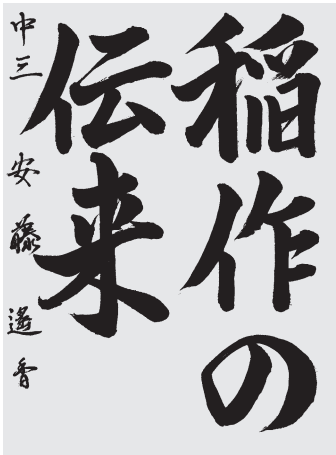 稲作の
伝来
中三 安藤遥香